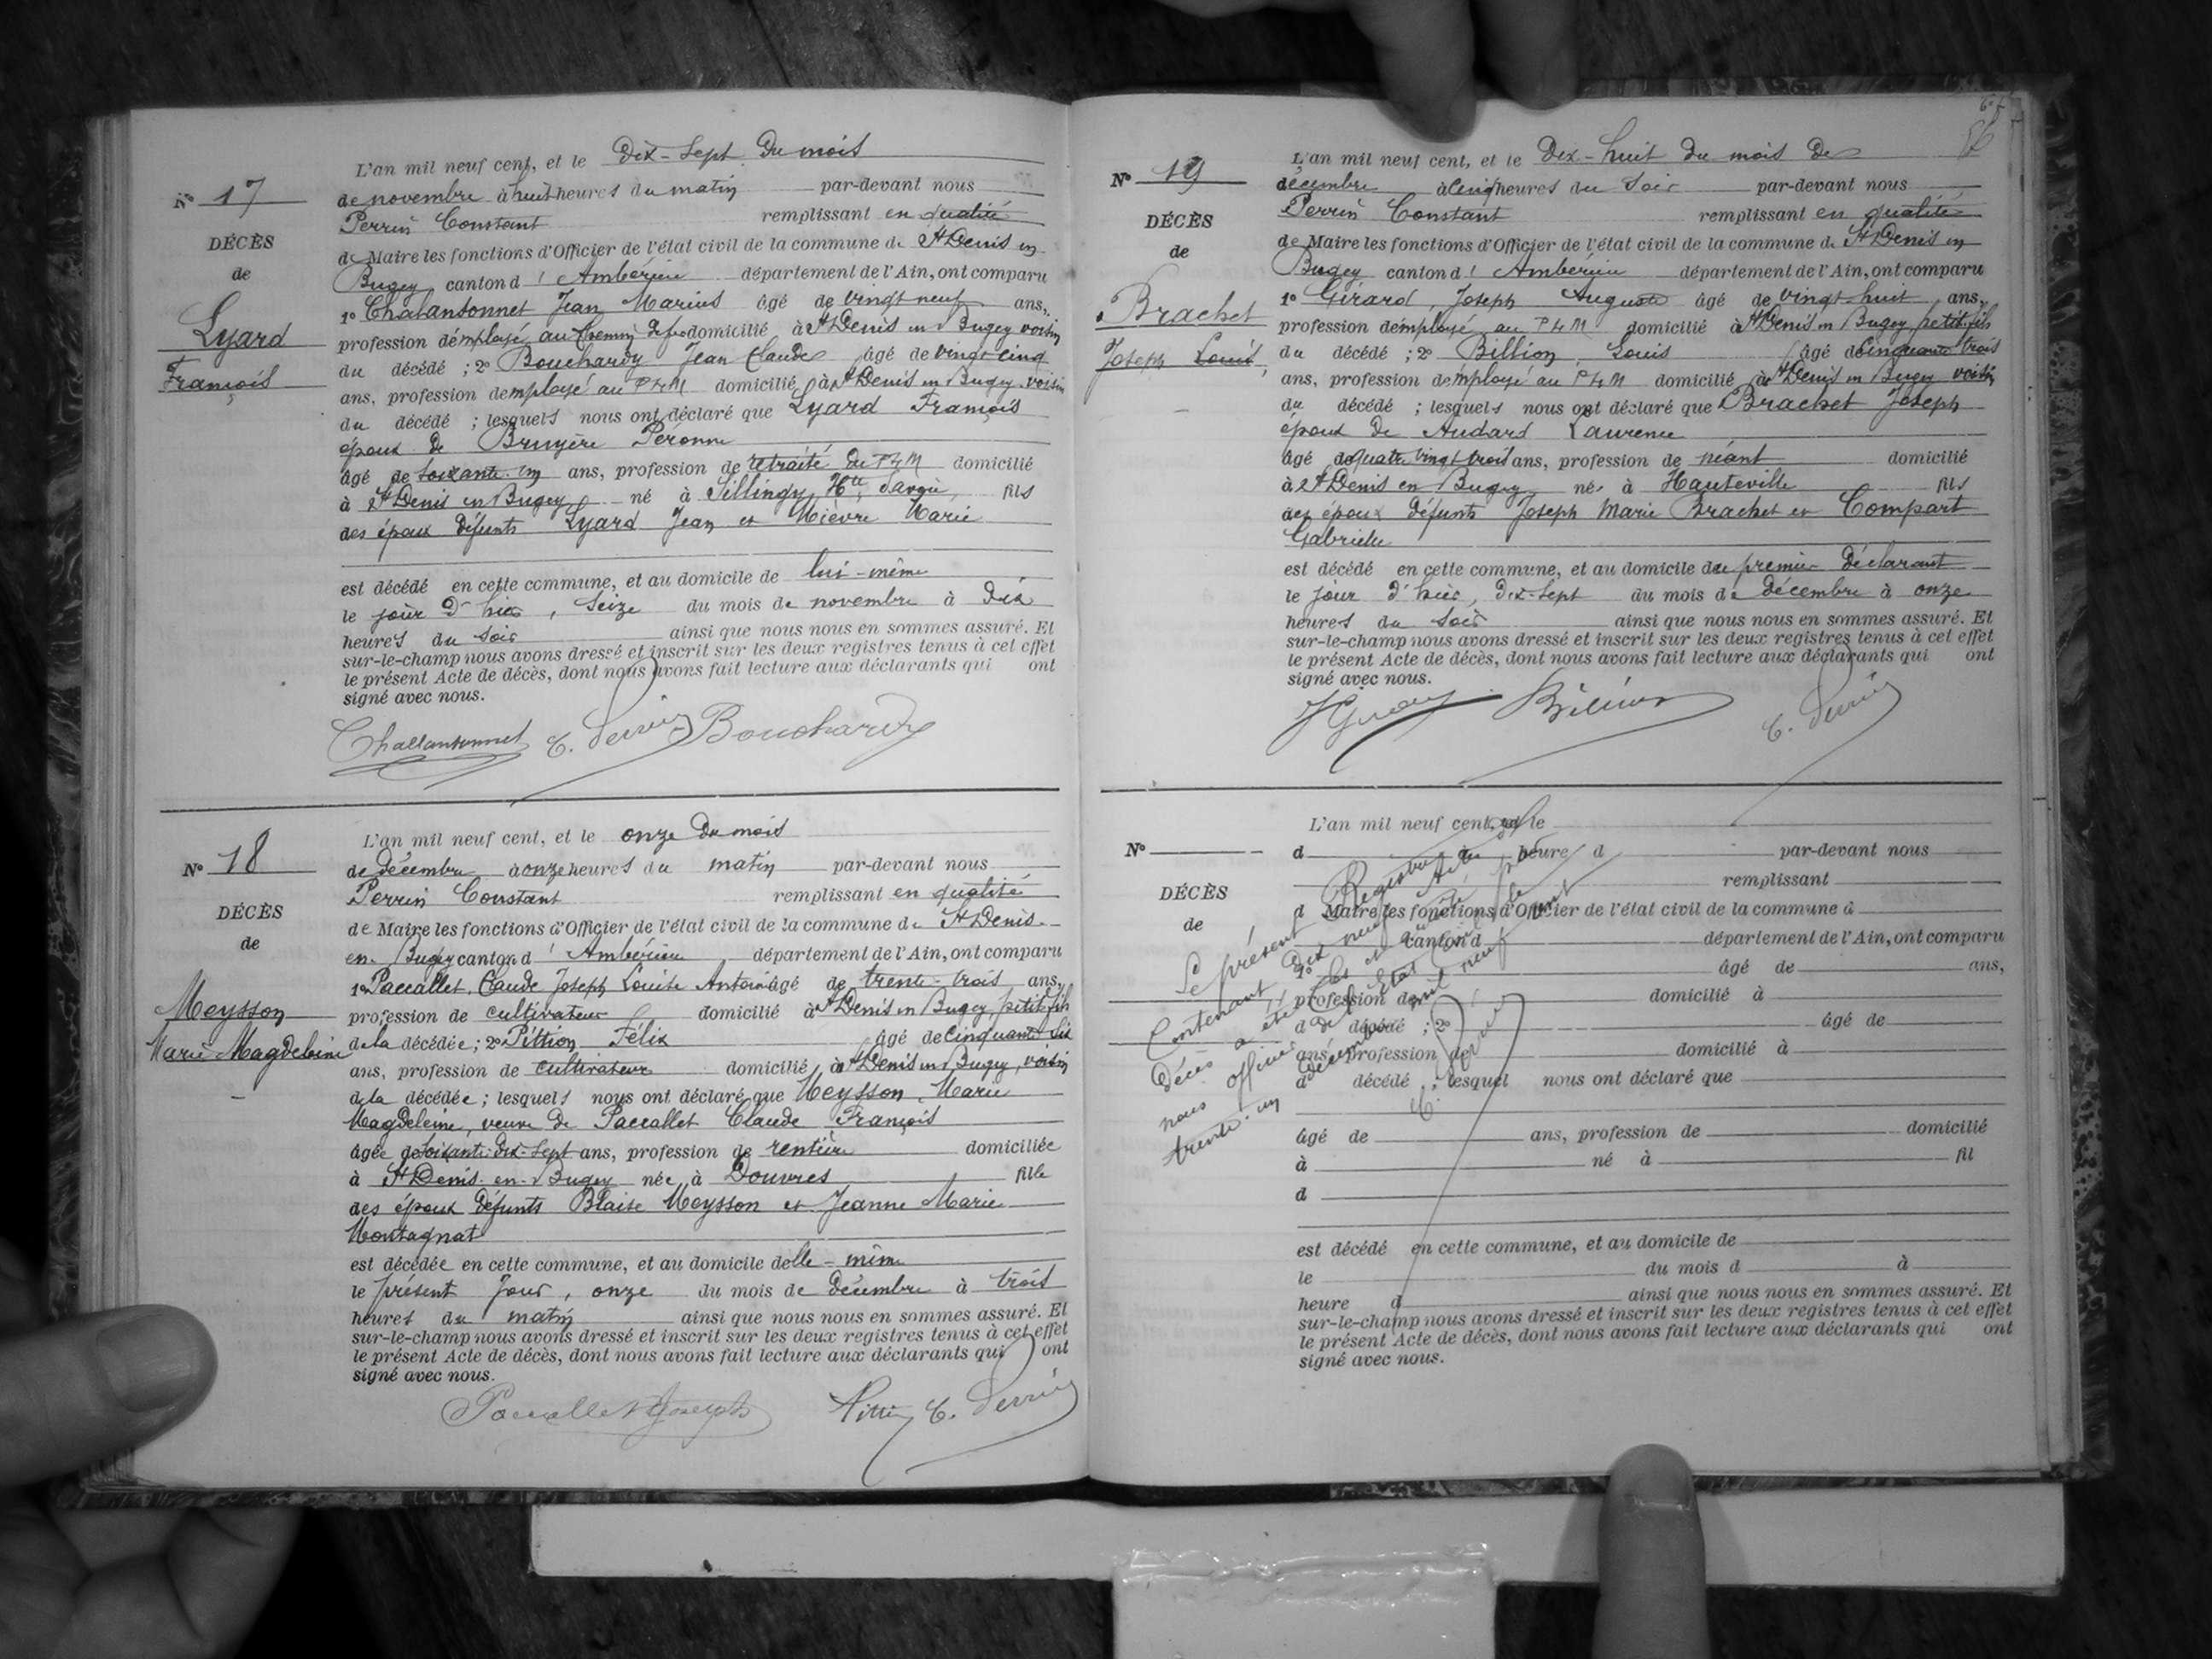 L'an mil neuf cent, et le Dix-Sept Du mois
N° 17
de novembre à huit heures du matin par-devant nous
Perrin Constant remplissant en qualité
DÉCÈS
de Maire les fonctions d'Officier de l'état civil de la commune de St Denis en
de
Bugey canton d'Ambérieu département de l'Ain, ont comparu
1° Chalansonnet Jean Marius âgé de vingt neuf ans,
Lyard
profession d'employé au Chemin de fer domicilié à St Denis en Bugey voisin
du décédé ; 2° Bouchardy Jean Claude âgé de vingt cinq
François
ans, profession d'employé au PLM domicilié à St Denis en Bugey voisin
du décédé ; lesquels nous ont déclaré que Lyard François
époux de Bruyère Péronne
âgé de soixante-un ans, profession de retraité du PLM domicilié
à St Denis en Bugey né à Sillingy, Hte Savoie, fils
des époux défunts Lyard Jean et Mièvre Marie
est décédé en cette commune, et au domicile de lui-même
le jour d'hier, seize du mois de novembre à dix
heures du soir ainsi que nous nous en sommes assuré. Et
sur-le-champ nous avons dressé et inscrit sur les deux registres tenus à cet effet
le présent Acte de décès, dont nous avons fait lecture aux déclarants qui ont
signé avec nous.
Challansonnet C. Perrin Bouchardy
L'an mil neuf cent, et le onze Du mois
N° 18
de Décembre à onze heures du matin par-devant nous
Perrin Constant remplissant en qualité
DÉCÈS
de Maire les fonctions d'Officier de l'état civil de la commune de St Denis
de
en Bugey canton d'Ambérieu département de l'Ain, ont comparu
1° Paccallet Claude Joseph Louis Antoine âgé de trente-trois ans,
Meysson
profession de cultivateur domicilié à St Denis en Bugey, petit fils
Marie Magdeleine
de la décédée ; 2° Pittion Félix âgé de cinquante six
ans, profession de cultivateur domicilié à St Denis en Bugey, voisin
de la décédée ; lesquels nous ont déclaré que Meysson Marie
Magdeleine, veuve de Paccallet Claude François
âgée de soixante-dix-sept ans, profession de rentière domiciliée
à St Denis-en-Bugey née à Douvres fille
des époux défunts Blaise Meysson et Jeanne Marie
Montagnat
est décédée en cette commune, et au domicile d'elle-même
le présent jour, onze du mois de Décembre à trois
heures du matin ainsi que nous nous en sommes assuré. Et
sur-le-champ nous avons dressé et inscrit sur les deux registres tenus à cet effet
le présent Acte de décès, dont nous avons fait lecture aux déclarants qui ont
signé avec nous.
Paccallet Joseph Pittion C. Perrin
L'an mil neuf cent, et le Dix-huit du mois de
N° 19
décembre à cinq heures du soir par-devant nous
Perrin Constant remplissant en qualité
DÉCÈS
de Maire les fonctions d'Officier de l'état civil de la commune de St Denis en
de
Bugey canton d'Ambérieu département de l'Ain, ont comparu
1° Girard, Joseph Auguste âgé de vingt-huit ans,
Brachet
profession d'employé au PLM domicilié à St Denis en Bugey, petit fils
Joseph Louis
du décédé ; 2° Billion, Louis âgé de cinquante trois
ans, profession d'employé au PLM domicilié à St Denis en Bugey voisin
du décédé ; lesquels nous ont déclaré que Brachet Joseph
époux de Audard Laurence
âgé de quatre vingt trois ans, profession de néant domicilié
à St Denis en Bugey né à Hauteville fils
des époux défunts Joseph Marie Brachet et Compart
Gabrielle
est décédé en cette commune, et au domicile du premier déclarant
le jour d'hier, dix-sept du mois de décembre à onze
heures du soir ainsi que nous nous en sommes assuré. Et
sur-le-champ nous avons dressé et inscrit sur les deux registres tenus à cet effet
le présent Acte de décès, dont nous avons fait lecture aux déclarants qui ont
signé avec nous.
C. Perrin
L'an mil neuf cent, et le
N°
d à heure d par-devant nous
remplissant
DÉCÈS
d Maire les fonctions d'Officier de l'état civil de la commune d
de
canton d département de l'Ain, ont comparu
1° âgé de ans,
profession de domicilié à
d décédé ; 2° âgé de
ans, profession de domicilié à
d décédé ; lesquel nous ont déclaré que
âgé de ans, profession de domicilié
à né à fil
d
est décédé en cette commune, et au domicile de
le du mois d à
heure d ainsi que nous nous en sommes assuré. Et
sur-le-champ nous avons dressé et inscrit sur les deux registres tenus à cet effet
le présent Acte de décès, dont nous avons fait lecture aux déclarants qui ont
signé avec nous.
Le présent Registre
Contenant Dix neuf Actes de
Décès a été Clos et arrêté par
nous officier de l'état Civil le
trente-un décembre mil neuf cent
C. Perrin